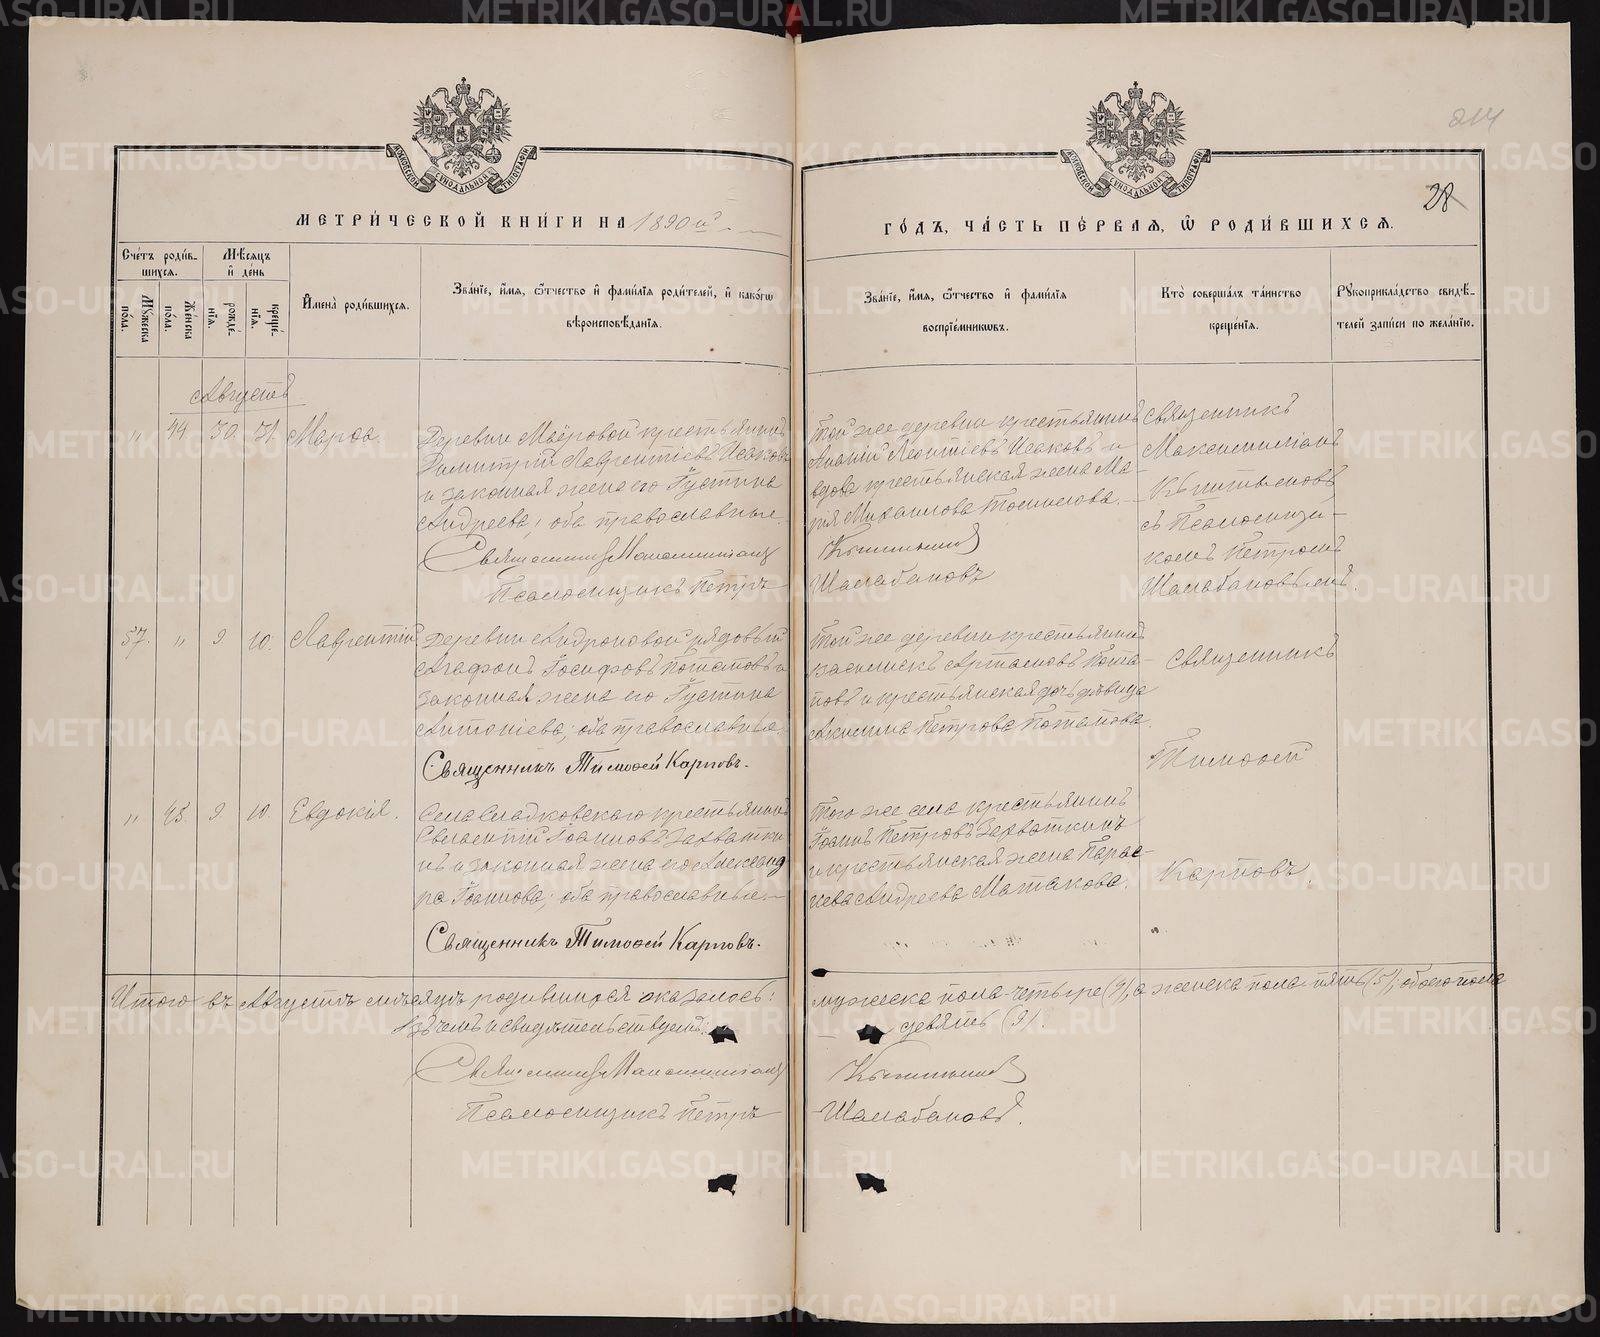 МЕТРИ́ЧЕСКОЙ КНИ́ГИ НА 1890й
ГО́ДЪ, ЧА́СТЬ ПЕ́РВАЯ, Ѡ РОДИ́ВШИХСЯ.
214
28
Сче́тъ роди́в-
шихся.
Мѣ́сяцъ
и҆ де́нь
Му́жеска
по́ла.
Же́нска
по́ла.
рожде́-
нїя.
креще́-
нїя.
И҆мена̀ роди́вшихся.
Зва́нїе, и҆́мя, ѻ҆́тчество и҆ фами́лїя роди́телей, и҆ како́гѡ
вѣроисповѣ́данїя.
Зва́нїе, и҆́мя, ѻ҆́тчество и҆ фами́лїя
воспрїе́мникѡвъ.
Кто̀ соверша́лъ та́инство
креще́нїя.
Рꙋкоприкла́дство свидѣ́-
телей за́писи по жела́нїю.
Августъ
" 44 30 31 Марѳа
Деревни Маёровой крестьянинъ
Димитрій Лаврентіевъ Исаковъ
и законная жена его Іустина
Андреева; оба православные.
Священникъ Максимиліанъ
Псаломщикъ Петръ
Той же деревни крестьянинъ
Ананій Леонтіевъ Исаковъ и
вдова крестьянская жена Ма-
рія Михаилова
Шалабановъ
Священникъ
Максимиліанъ
съ Псаломщи-
комъ Петромъ
Шалабановымъ.
57. " 9 10. Лаврентій
Деревни Андроновой рядовой
Агафонъ Іосифовъ Потаповъ и
законная жена его Іустина
Антоніева; оба православные.
Священникъ Тимоѳей Карповъ.
Той же деревни крестьянинъ
Артамовъ Пота-
повъ и крестьянская дочь дѣвица
Акилина Петрова Потапова.
Священникъ
Тимоѳей
Карповъ.
" 45. 9 10. Евдокія.
Села Сладковскаго крестьянинъ
Іоанновъ Зарваткı-
нъ и законная жена его Александ-
ра Іоаннова; оба православные.
Священникъ Тимоѳей Карповъ.
Того же села крестьянинъ
Іоаннъ Петровъ Зарваткинъ
и крестьянская жена Парас-
кева Андреева Маткова.
Итого въ Августѣ мѣсяцѣ родившихся оказалось:
мужеска пола четыре (4), а женска пола пять (5); обоего пола
девять (9).
въ чемъ и свидѣтельствуемъ:
Священникъ Максимиліанъ
Псаломщикъ Петръ
Шалабановъ.
METRIKI.GASO-URAL.RU